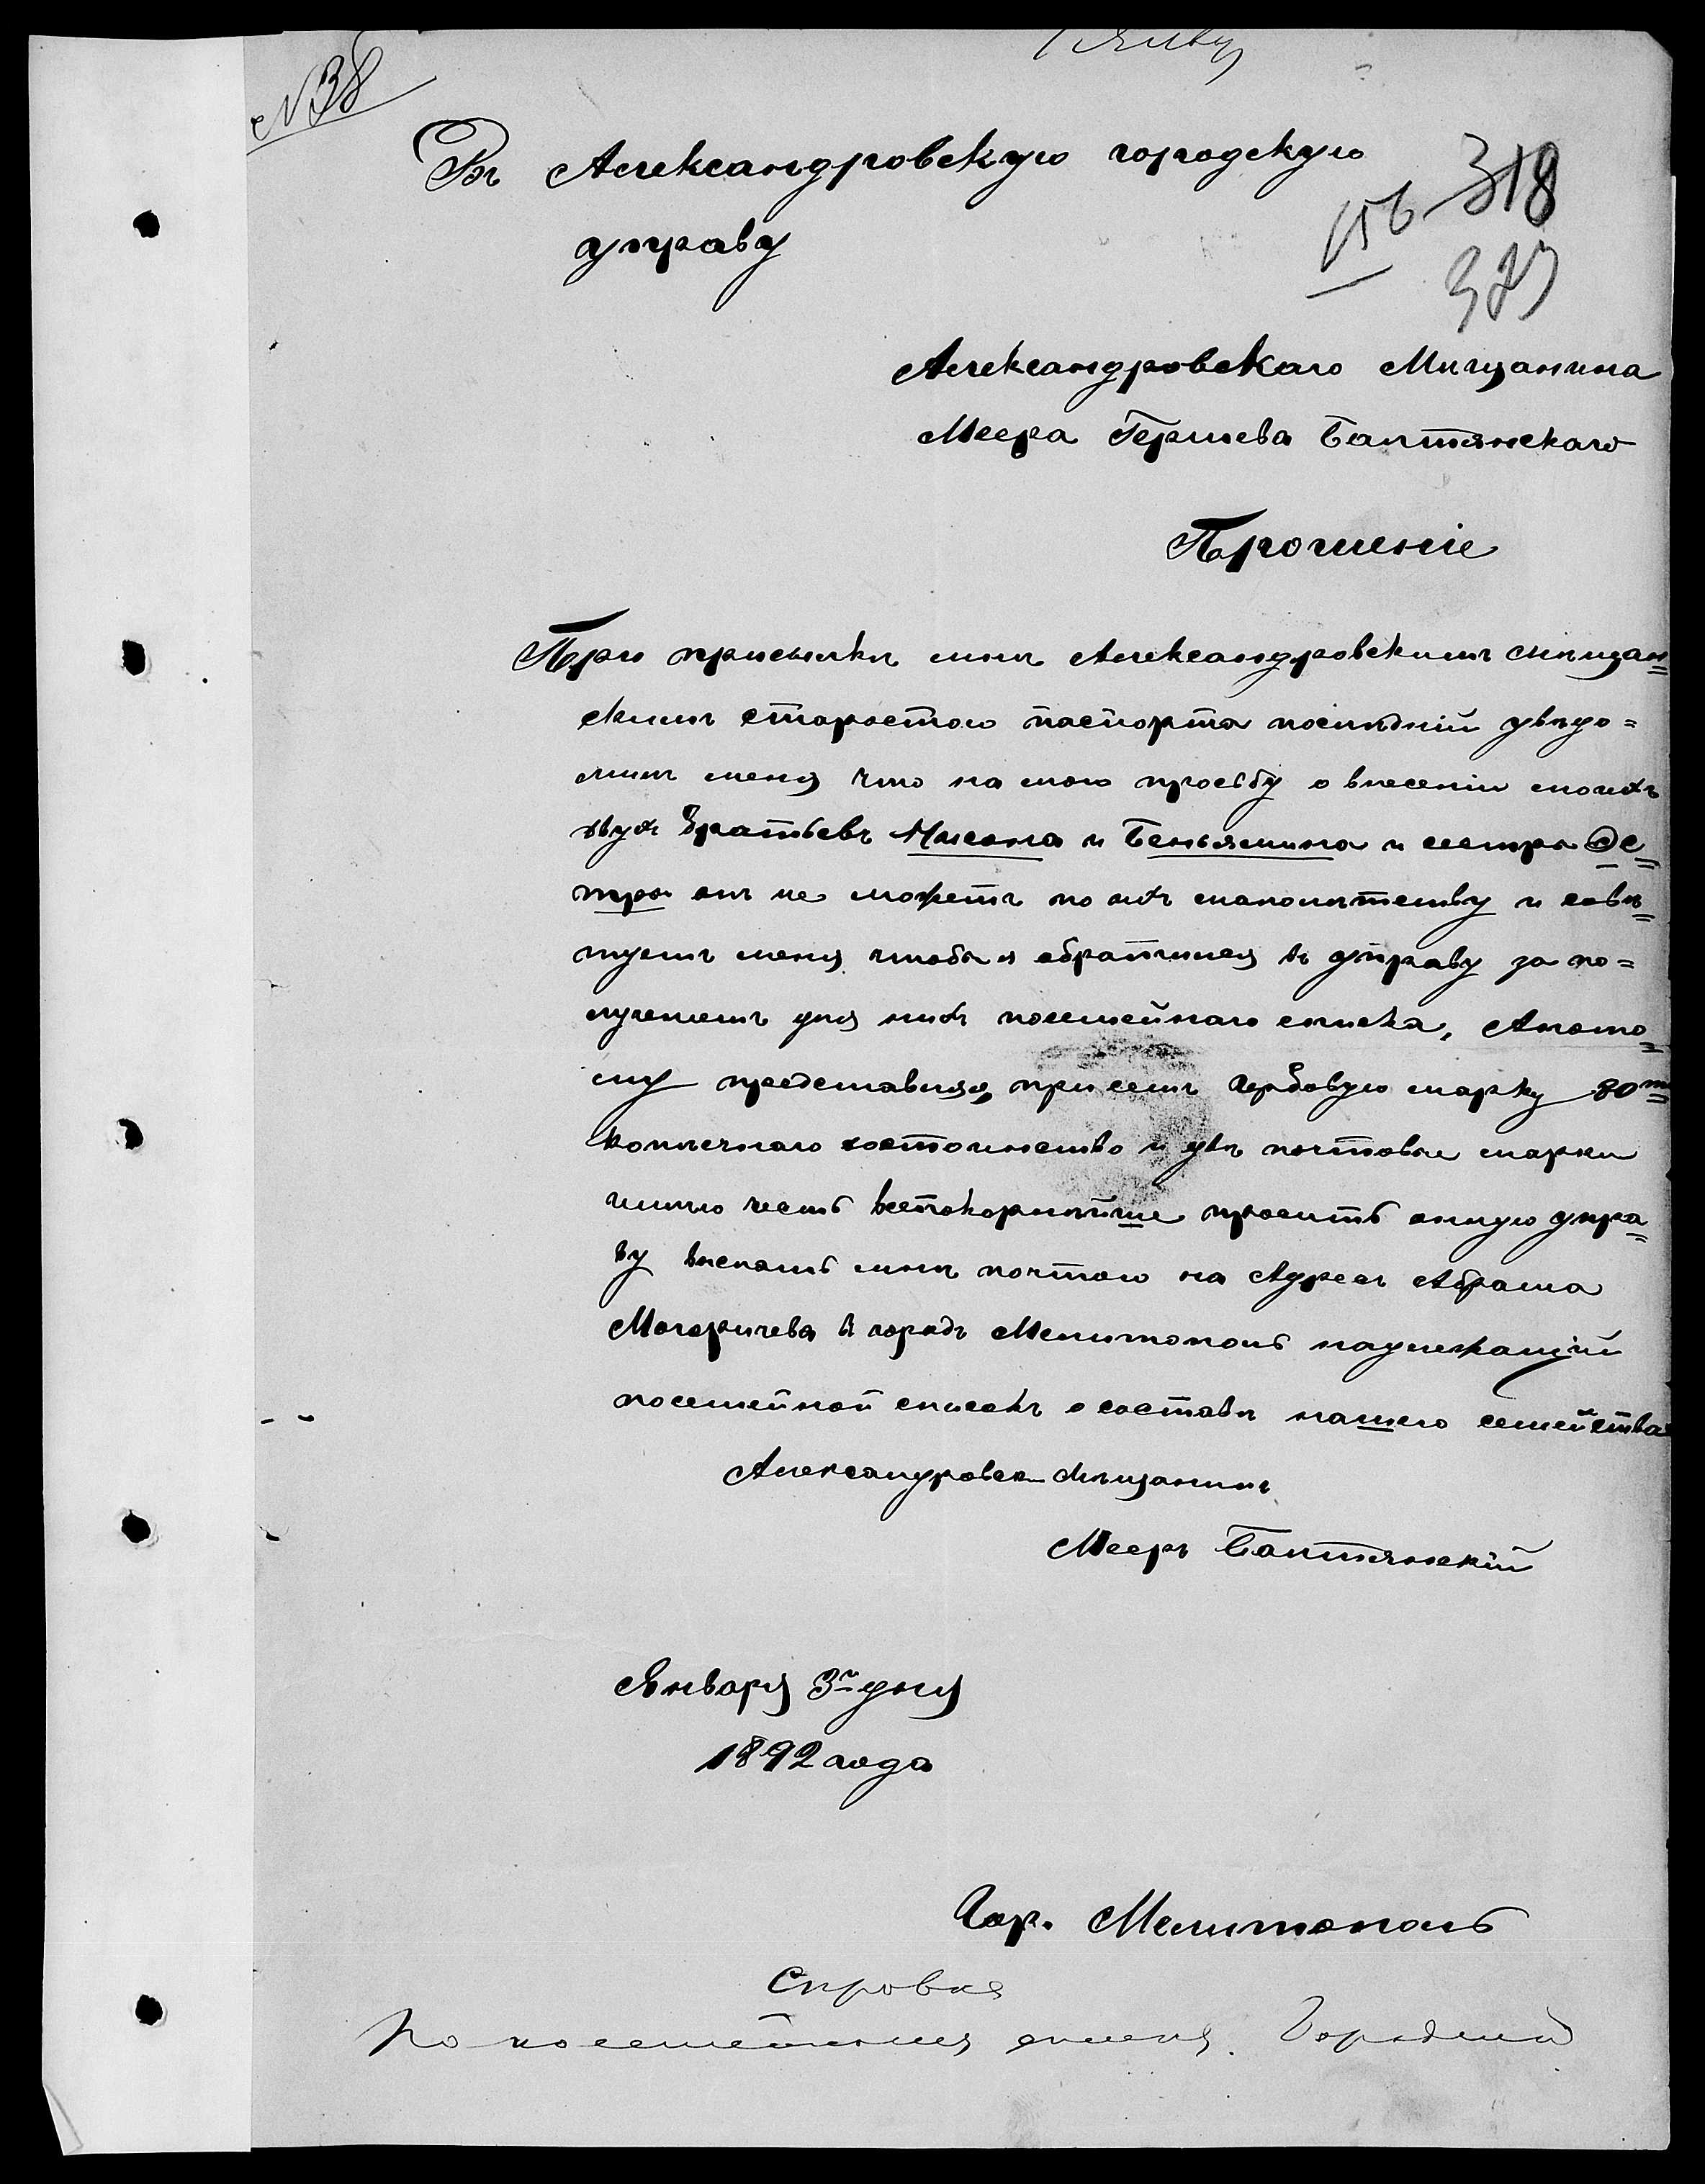 № 38
318
156
Въ Александровскую городскую
управу
Александровскаго Мѣщанина
Меера Гершева Балтянскаго
Прошеніе
При присылкѣ мнѣ Александровскимъ мѣщан=
скимъ старостою паспорта послѣдній увѣдо=
милъ меня что на мою просьбу о внесеніи моихъ
двухъ братьевъ Нисона и Беньямина и сестра
онъ не можетъ по ихъ малолѣтству и совѣ=
туетъ меня чтобы я обратился въ управу за по=
лученіемъ для нихъ посемейнаго списка, Апото=
му представляя при семъ гербовую марку 80ти=
копѣечнаго достоинство и двѣ почтовыя марки
имѣю честь всепокорнѣйше просить онную упра=
ву выслать мнѣ почтою на Адресъ Абрама
Могаричева въ городъ Мелитополь надлежащій
посемейной списокъ о составѣ нашего семейства
Александровск мѣщанинъ
Мееръ Балтянскій
Января 3го дня
1892 года
Гор. Мелитополь
Справка
По посемейнымъ